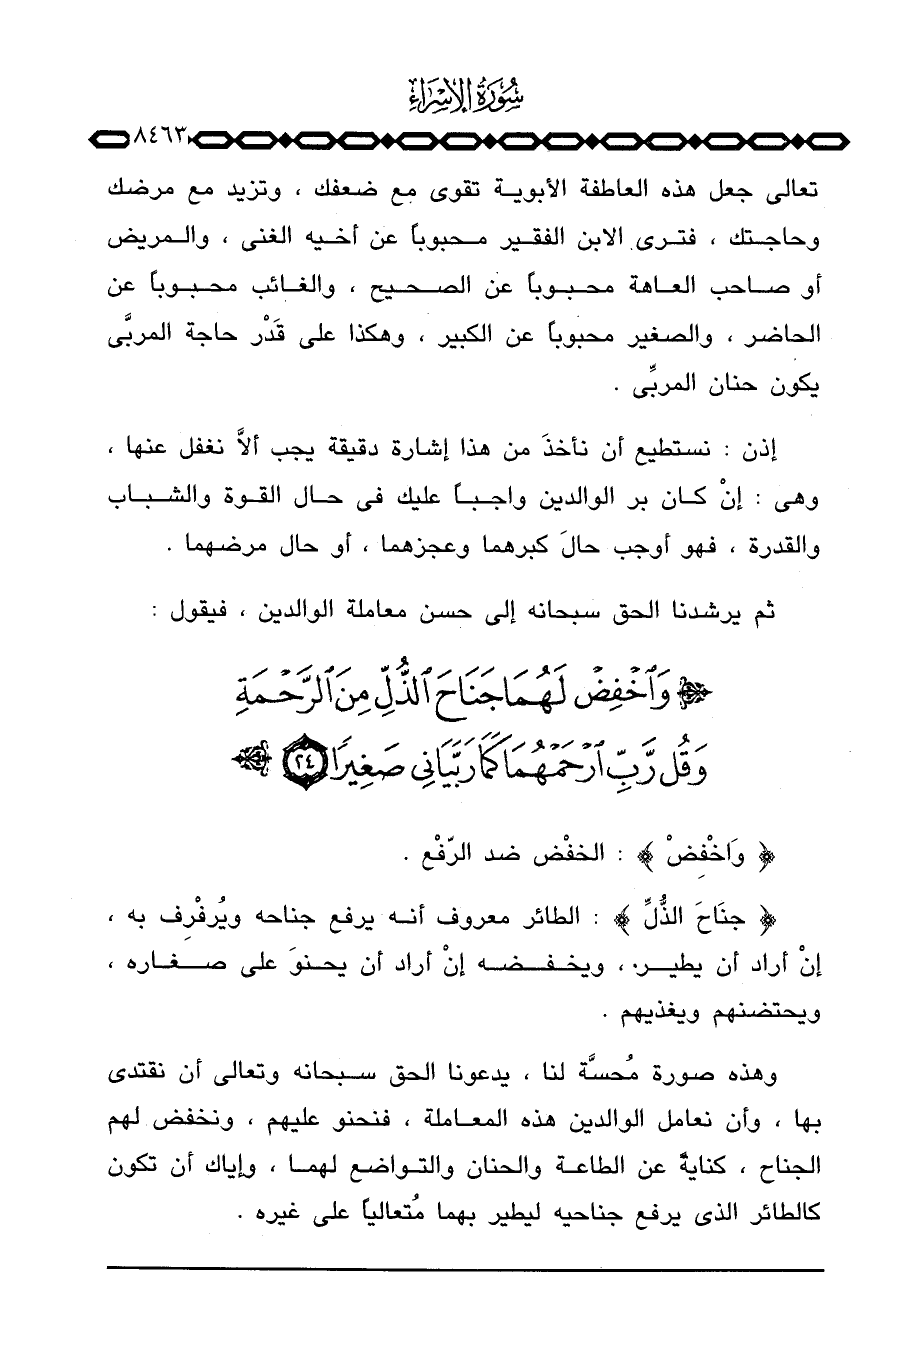 سُورَةُ الإِسْرَاءِ
٨٤٦٣
تعالى جعل هذه العاطفة الأبوية تقوى مع ضعفك ، وتزيد مع مرضك
وحاجتك ، فترى الابن الفقير محبوباً عن أخيه الغنى ، والمريض
أو صاحب العاهة محبوباً عن الصحيح ، والغائب محبوباً عن
الحاضر ، والصغير محبوباً عن الكبير ، وهكذا على قَدْر حاجة المربَّى
يكون حنان المربِّى .
إذن : نستطيع أن نأخذَ من هذا إشارة دقيقة يجب ألاَّ نغفل عنها ،
وهى : إنْ كان بر الوالدين واجباً عليك فى حال القوة والشباب
والقدرة ، فهو أوجب حالَ كبرهما وعجزهما ، أو حال مرضهما .
ثم يرشدنا الحق سبحانه إلى حسن معاملة الوالدين ، فيقول :
وَٱخْفِضْ لَهُمَا جَنَاحَ ٱلذُّلِّ مِنَ ٱلرَّحْمَةِ
وَقُل رَّبِّ ٱرْحَمْهُمَا كَمَا رَبَّيَانِى صَغِيرًا ٢٤
﴿ وَاخْفِضْ ﴾ : الخفْض ضد الرّفْع .
﴿ جنَاحَ الذُّلِّ ﴾ : الطائر معروف أنه يرفع جناحه ويُرفْرِف به ،
إنْ أراد أن يطير ، ويخفضه إنْ أراد أن يحنوَ على صغاره ،
ويحتضنهم ويغذيهم .
وهذه صورة مُحسَّة لنا ، يدعونا الحق سبحانه وتعالى أن نقتدى
بها ، وأن نعامل الوالدين هذه المعاملة ، فنحنو عليهم ، ونخفض لهم
الجناح ، كنايةً عن الطاعة والحنان والتواضع لهما ، وإياك أن تكون
كالطائر الذى يرفع جناحيه ليطير بهما مُتعالياً على غيره .